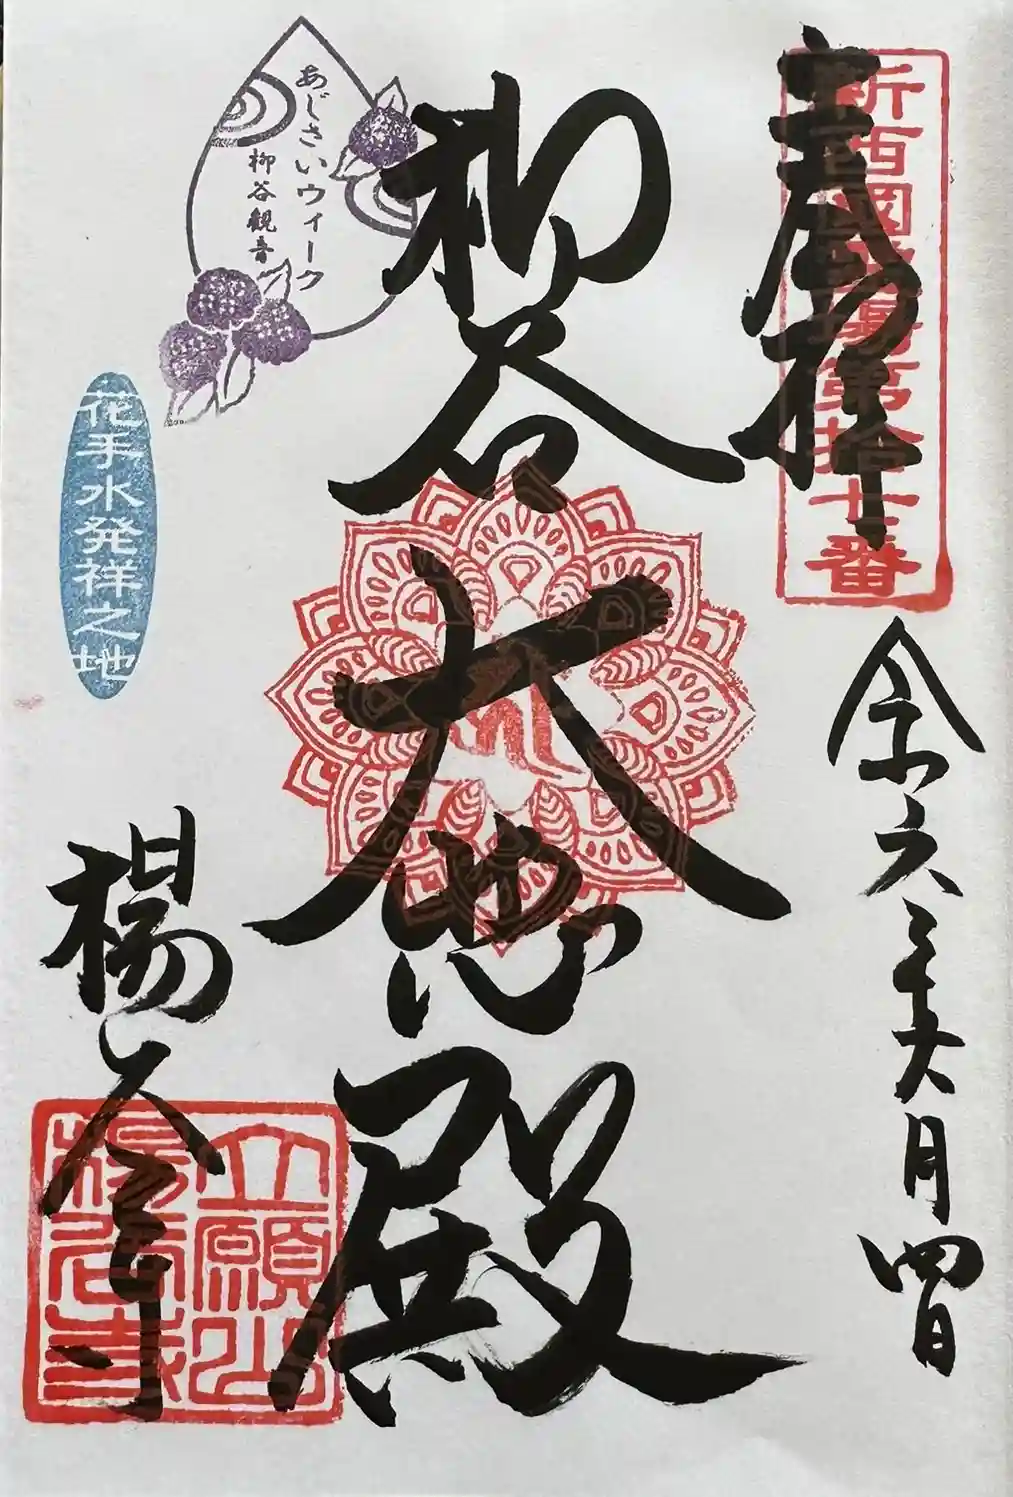 奉拝
新西國霊場第拾七番
令和六年六月四日
柳谷
大悲殿
あじさいウィーク
柳谷観音
花手水発祥之地
楊谷寺
立願山
楊谷寺